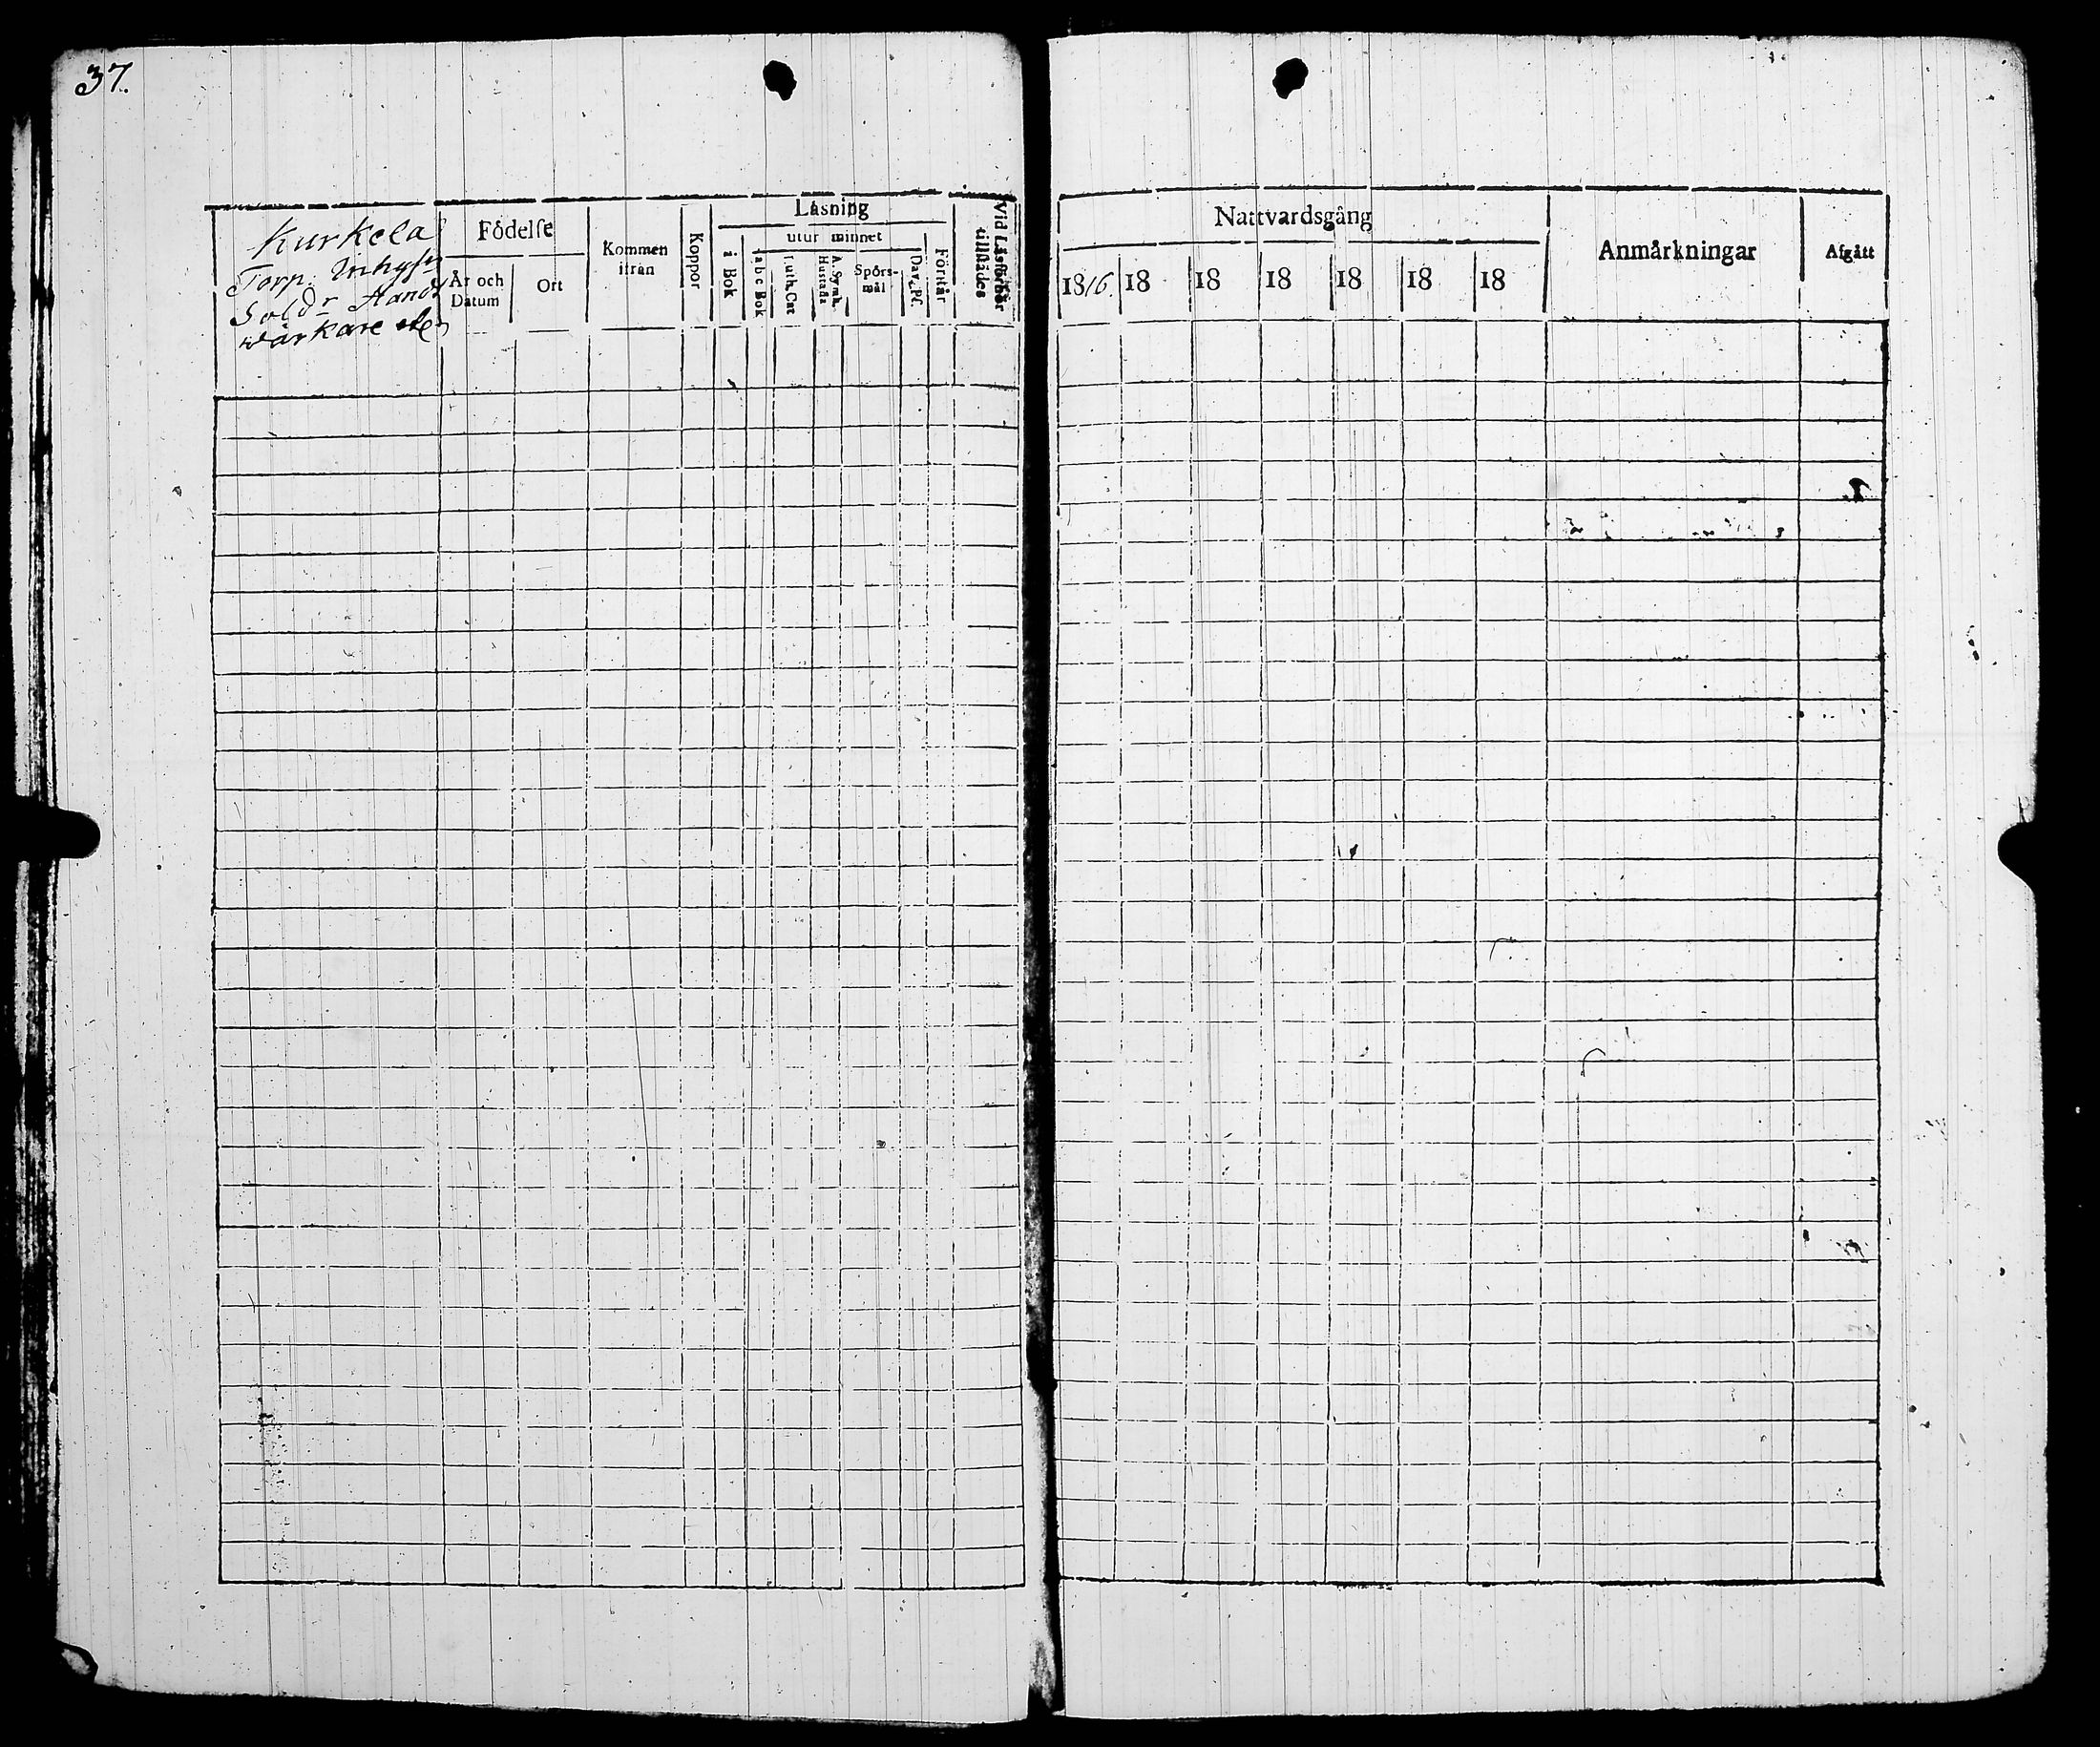 37.
Kurkela
Torp. Inhyses
Sold:r Handt
wärkare etc
Födelse
År och Datum
Ort
Kommen ifrån
Koppor
Läsning
i Bok
utur minnet
a b c Bok
Luth. Cat
Hustafla
A. Symb.
Spörs-
mål
Dav. Ps.
Förstår
Vid Läsförhör tillstädes
Nattvardsgång
1816. 18 18 18 18 18 18
Anmärkningar
Afgått